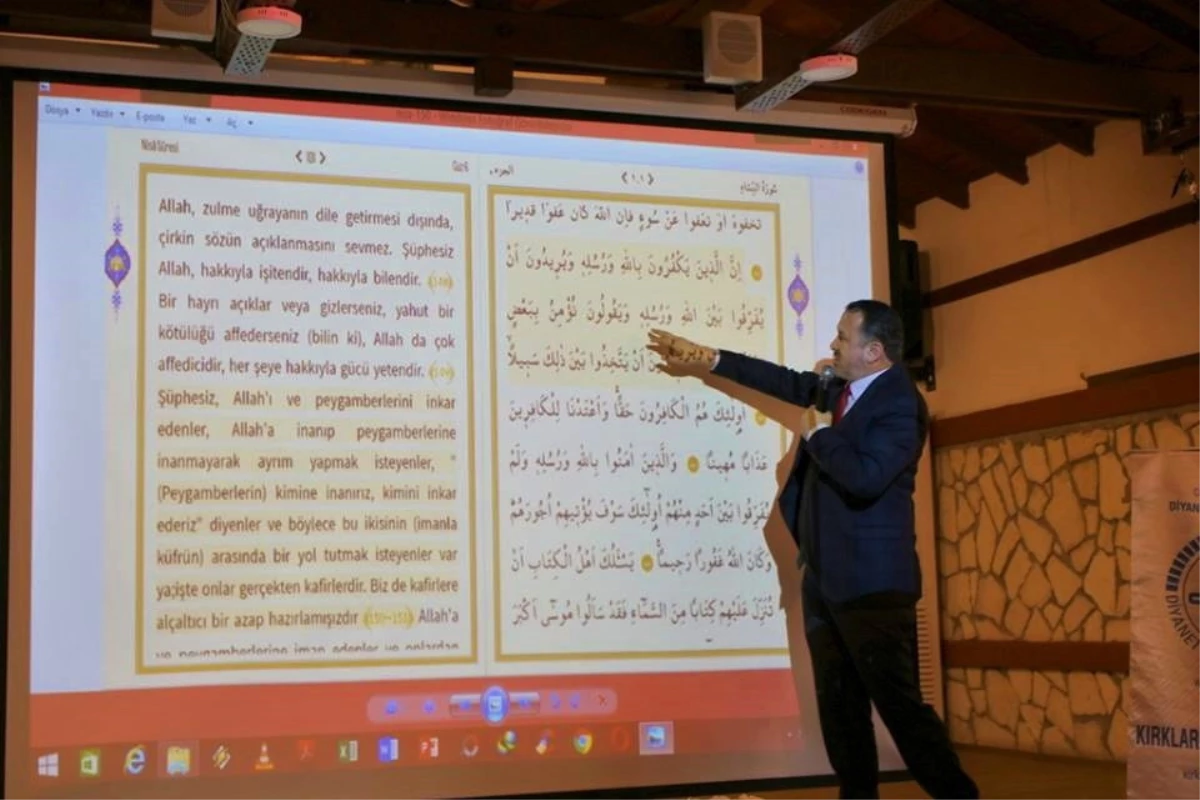 Dosya Yazdır E-posta Yaz Aç
Nisâ Sûresi
Cüz 6
الجزء
﴿١٠١﴾
سورة النساء
Allah, zulme uğrayanın dile getirmesi dışında,
çirkin sözün açıklanmasını sevmez. Şüphesiz
Allah, hakkıyla işitendir, hakkıyla bilendir.
Bir hayrı açıklar veya gizlerseniz, yahut bir
kötülüğü affederseniz (bilin ki), Allah da çok
affedicidir, her şeye hakkıyla gücü yetendir.
Şüphesiz, Allah'ı ve peygamberlerini inkar
edenler, Allah'a inanıp peygamberlerine
inanmayarak ayrım yapmak isteyenler, "
(Peygamberlerin) kimine inanırız, kimini inkar
ederiz" diyenler ve böylece bu ikisinin (imanla
küfrün) arasında bir yol tutmak isteyenler var
ya;işte onlar gerçekten kafirlerdir. Biz de kafirlere
alçaltıcı bir azap hazırlamışızdır (150-151) Allah'a
ve peygamberlerine iman edenler ve onlardan
تخفوه او تعفوا عن سوء فان الله كان عفوا قديرا
اِنَّ الَّذِينَ يَكْفُرُونَ بِاللهِ وَرُسُلِهِ وَيُرِيدُونَ اَنْ
يُفَرِّقُوا بَيْنَ اللهِ وَرُسُلِهِ وَيَقُولُونَ نُؤْمِنُ بِبَعْضٍ
اَنْ يَتَّخِذُوا بَيْنَ ذٰلِكَ سَبِيلًا
اُولٰئِكَ هُمُ الْكَافِرُونَ حَقًّا وَاَعْتَدْنَا لِلْكَافِرِينَ
عَذَابًا مُهِينًا وَالَّذِينَ اٰمَنُوا بِاللهِ وَرُسُلِهِ وَلَمْ
يُفَرِّقُوا بَيْنَ اَحَدٍ مِنْهُمْ اُولٰئِكَ سَوْفَ يُؤْتِيهِمْ اُجُورَهُمْ
وَكَانَ اللهُ غَفُورًا رَحِيمًا يَسْـَٔلُكَ اَهْلُ الْكِتَابِ اَنْ
تُنَزِّلَ عَلَيْهِمْ كِتَابًا مِنَ السَّمَاءِ فَقَدْ سَاَلُوا مُوسٰى اَكْبَرَ
DİYAN
DİYANE
KIRKLAR